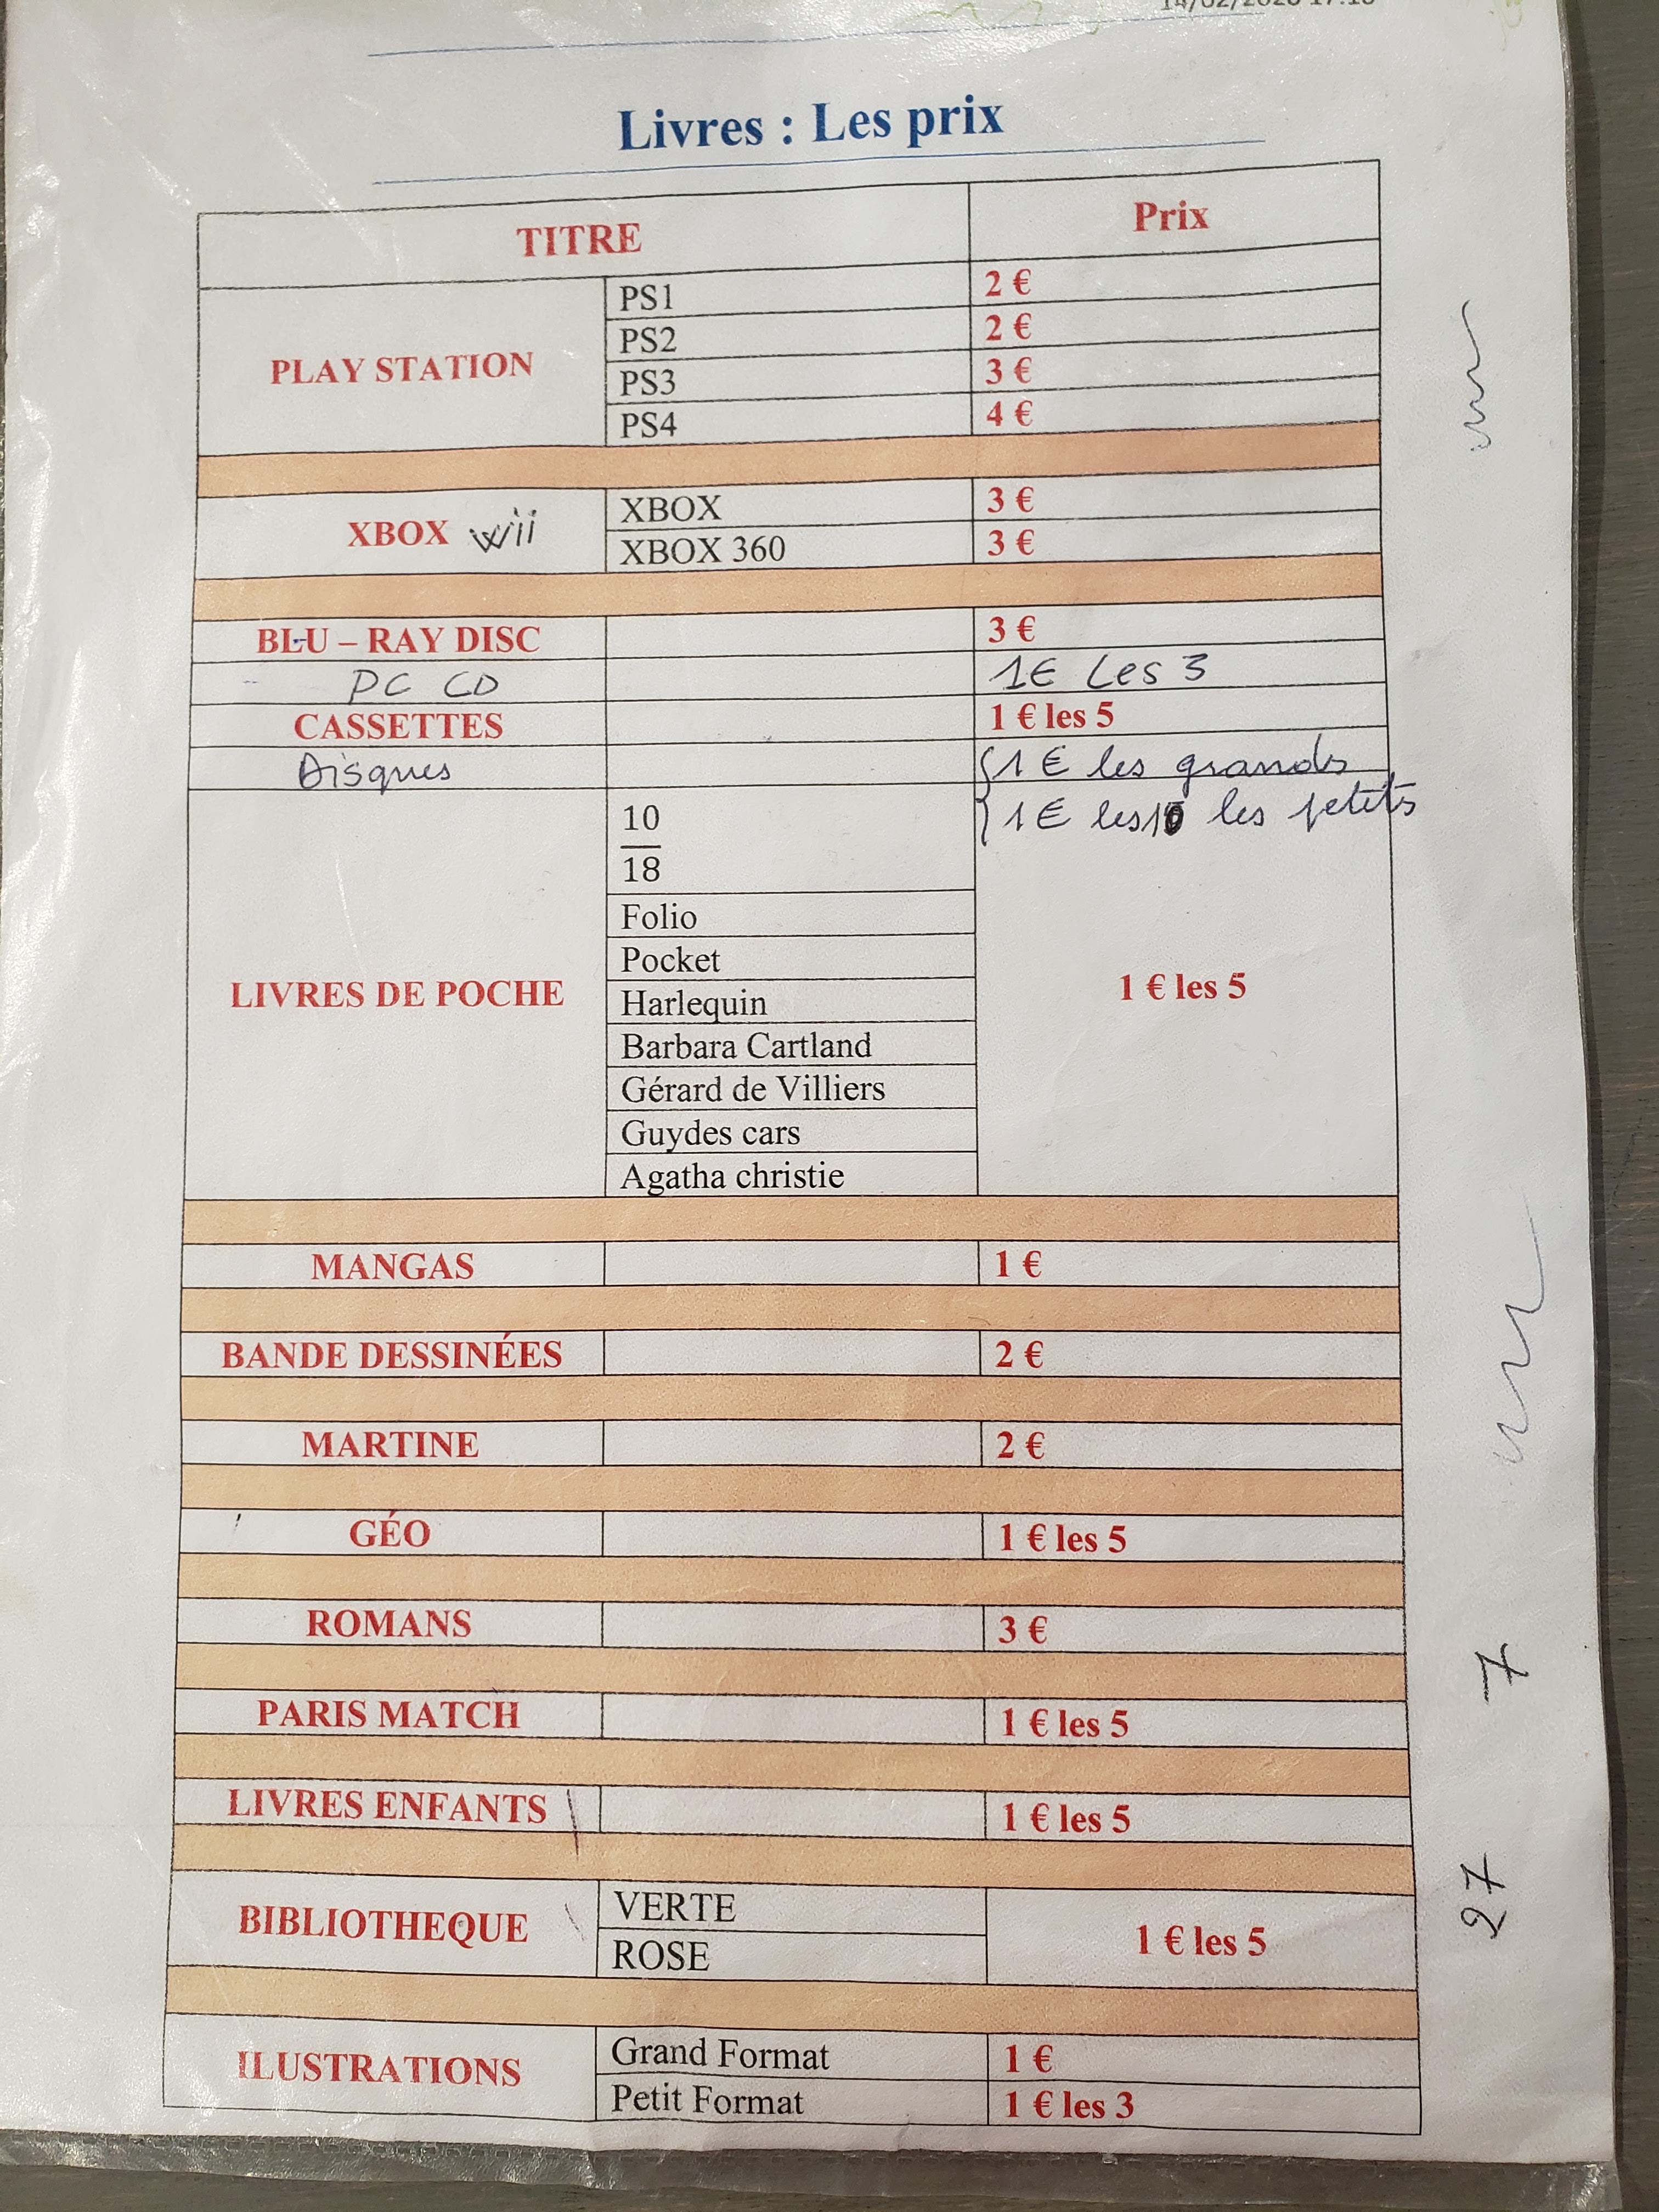 Livres : Les prix
TITRE Prix
PLAY STATION
PS1 2 €
PS2 2 €
PS3 3 €
PS4 4 €
XBOX wii
XBOX 3 €
XBOX 360 3 €
BLU – RAY DISC 3 €
PC CD 1€ Les 3
CASSETTES 1 € les 5
Disques 1 € les grands
1 € les 10 les petits
LIVRES DE POCHE 1 € les 5
10
18
Folio
Pocket
Harlequin
Barbara Cartland
Gérard de Villiers
Guydes cars
Agatha christie
MANGAS 1 €
BANDE DESSINÉES 2 €
MARTINE 2 €
GÉO 1 € les 5
ROMANS 3 €
PARIS MATCH 1 € les 5
LIVRES ENFANTS 1 € les 5
BIBLIOTHEQUE 1 € les 5
VERTE
ROSE
ILUSTRATIONS
Grand Format 1 €
Petit Format 1 € les 3
27 7